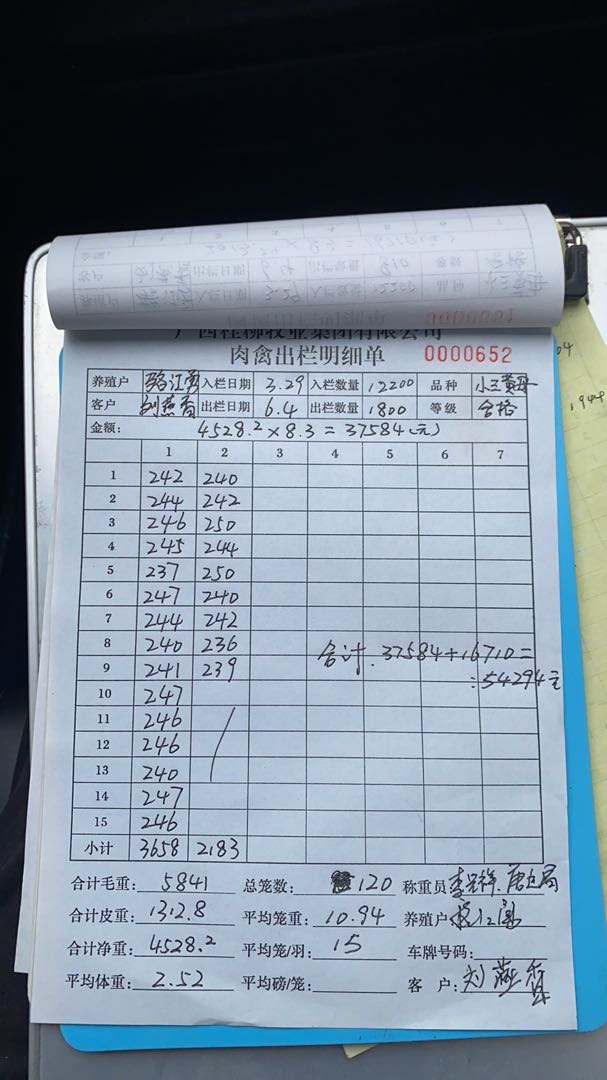 广西桂柳牧业集团有限公司
肉禽出栏明细单 0000652
养殖户 骆江勇 入栏日期 3.29 入栏数量 12200 品种 小三黄母
客户 刘燕香 出栏日期 6.4 出栏数量 1800 等级 合格
金额: 4528.2×8.3=37584(元)
1 2 3 4 5 6 7
1 242 240
2 244 242
3 246 250
4 245 244
5 237 250
6 247 240
7 244 242
8 240 236 合计.37584+16710=
9 241 239 :54294元
10 247
11 246
12 246
13 240
14 247
15 246
小计 3658 2183
合计毛重: 5841 总笼数: 120 称重员
合计皮重: 1312.8 平均笼重: 10.94 养殖户
合计净重: 4528.2 平均笼/羽: 15 车牌号码:
平均体重: 2.52 平均磅/笼: 客 户: 刘燕香